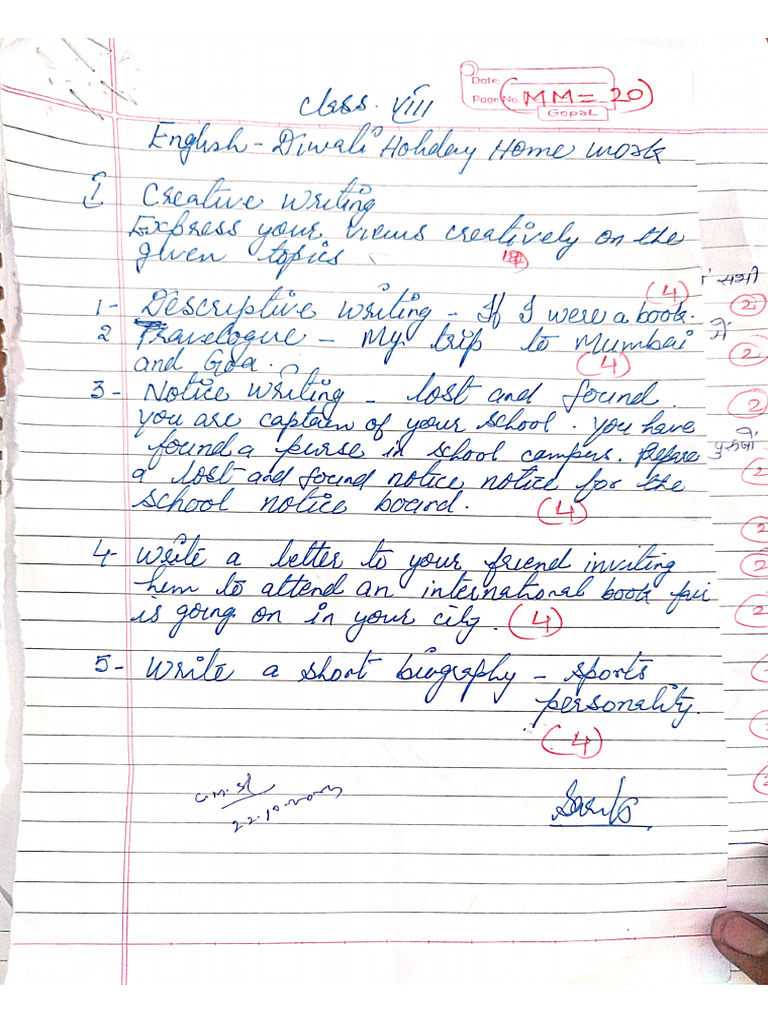 Date:
Page No. (MM = 20)
Gopal
Class. VIII
English - Diwali Holiday Home work
I Creative writing
Express your views creatively on the
given topics
(4)
1- Descriptive writing - If I were a book.
2 Travelogue - My trip to Mumbai
and Goa. (4)
3- Notice writing - lost and found.
you are captain of your school. you have
found a purse in school campus. Prepare
a lost and found notice notice for the
school notice board. (4)
4- write a letter to your friend inviting
him to attend an international book fair
is going on in your city. (4)
5- write a short biography - sports
personality.
(4)
सभी
2
में
2
2
2
2
2
2